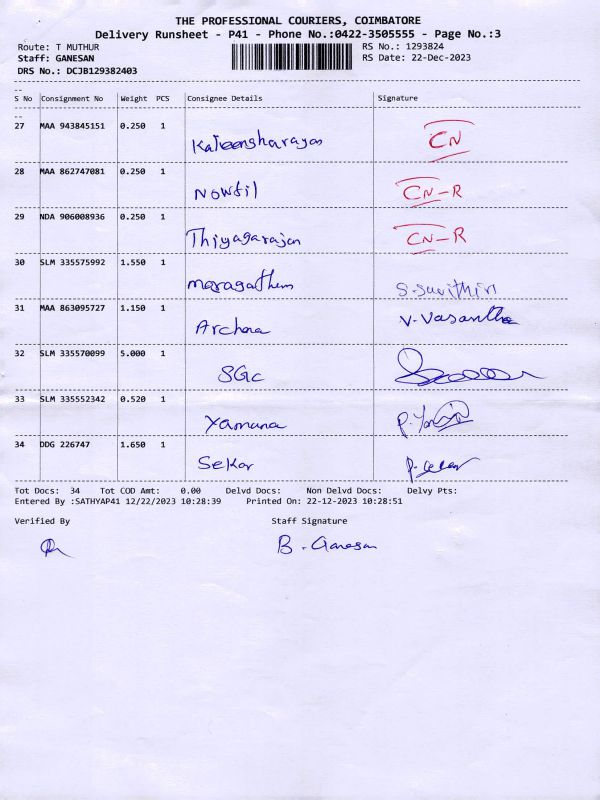 THE PROFESSIONAL COURIERS, COIMBATORE
Delivery Runsheet - P41 - Phone No.:0422-3505555 - Page No.:3
Route: T MUTHUR RS No.: 1293824
Staff: GANESAN RS Date: 22-Dec-2023
DRS No.: DCJB129382403
S No Consignment No Weight PCS Consignee Details Signature
27 MAA 943845151 0.250 1 CN
28 MAA 862747081 0.250 1 Nowfil CN-R
29 NDA 906008936 0.250 1 Thiyagarajan CN-R
30 SLM 335575992 1.550 1 Maragathem
31 MAA 863095727 1.150 1 Archana V. Vasantha
32 SLM 335570099 5.000 1 SGC
33 SLM 335552342 0.520 1 Yamuna
34 DDG 226747 1.650 1 Sekar
Tot Docs: 34 Tot COD Amt: 0.00 Delvd Docs: Non Delvd Docs: Delvy Pts:
Entered By :SATHYAP41 12/22/2023 10:28:39 Printed On: 22-12-2023 10:28:51
Verified By Staff Signature
B. Ganesan